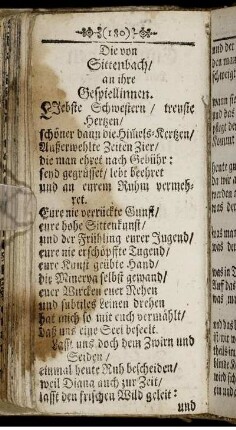 (180)
Die von
Sittenbach/
an ihre
Gespiellinnen.
LIebste Schwestern / treuste
Hertzen/
schöner dann die Him̃els-Kertzen/
Außerwehlte Zeiten Zier/
die man ehret nach Gebühr:
seyd gegrüsset/ lebt beehret
und an eurem Ruhm vermeh-
ret.
Eure nie verrückte Gunst/
eure hohe Sittenkunst/
und der Frühling eurer Jugend/
eure nie erschöpffte Tugend/
eure Kunst geübte Hand/
die Minerva selbst gewand/
euer Würcken euer Nehen
und subtiles Leinen drehen
hat mich so mit euch vermählt/
daß uns eine Seel beseelt.
Lasst uns doch dem Zwirn und
Seiden /
einmal heute Ruh bescheiden/
weil Diana auch zur Zeit/
lasst den frischen Wild geleit:
und